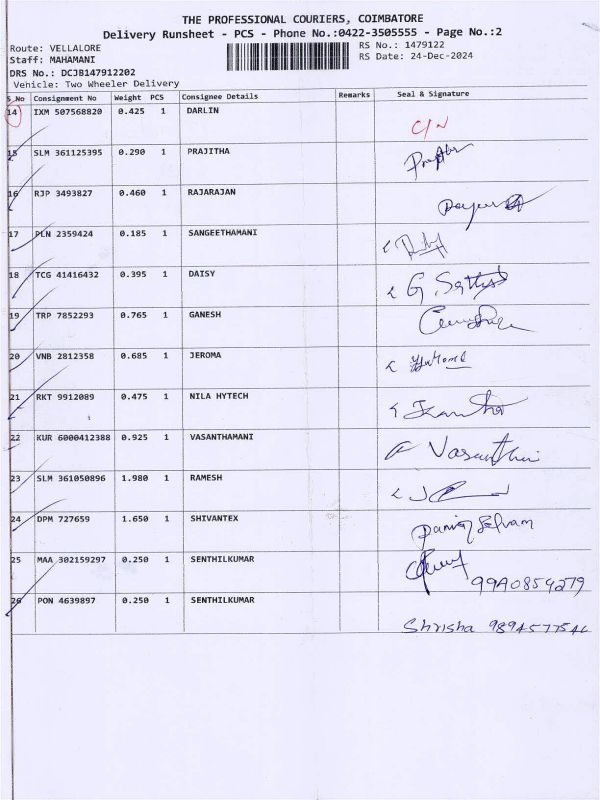 THE PROFESSIONAL COURIERS, COIMBATORE
Delivery Runsheet - PCS - Phone No.:0422-3505555 - Page No.:2
Route: VELLALORE
RS No.: 1479122
Staff: MAHAMANI
RS Date: 24-Dec-2024
DRS No.: DCJB147912202
Vehicle: Two Wheeler Delivery
S.No Consignment No Weight PCS Consignee Details Remarks Seal & Signature
14 IXM 507568820 0.425 1 DARLIN
C/N
15 SLM 361125395 0.290 1 PRAJITHA
16 RJP 3493827 0.460 1 RAJARAJAN
17 PLN 2359424 0.185 1 SANGEETHAMANI
18 TCG 41416432 0.395 1 DAISY
G. Sathish
19 TRP 7852293 0.765 1 GANESH
20 VNB 2812358 0.685 1 JEROMA
21 RKT 9912089 0.475 1 NILA HYTECH
22 KUR 6000412388 0.925 1 VASANTHAMANI
23 SLM 361050896 1.980 1 RAMESH
24 DPM 727659 1.650 1 SHIVANTEX
25 MAA 302159297 0.250 1 SENTHILKUMAR
26 PON 4639897 0.250 1 SENTHILKUMAR
Shrisha